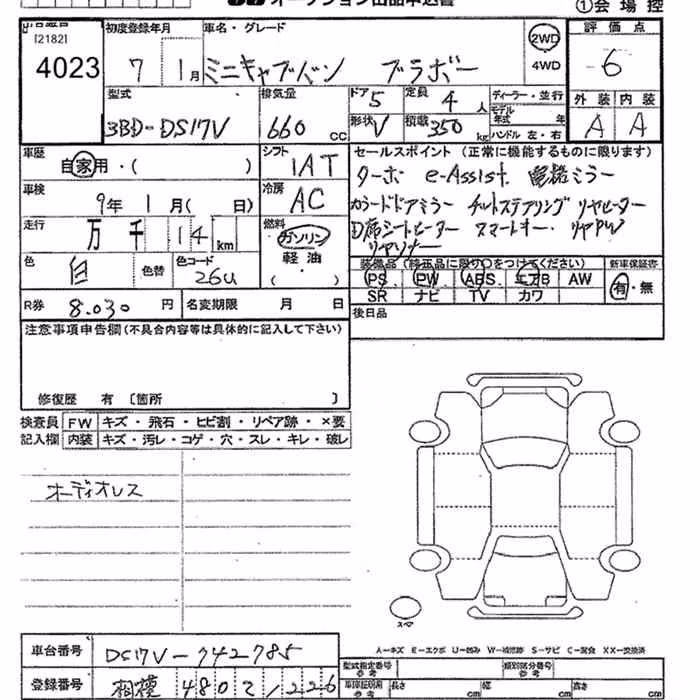 オークション出品申込書 ①会場控
[2182]
4023
初度登録年月 車名・グレード 評価点
7 1月 ミニキャブバン ブラボー 2WD 4WD 6
型式 排気量 ドア 5 定員 4 人 ディーラー・並行 外装 内装
3BD-DS17V 660 CC 形状 V 積載 350 kg モデル年式 年 ハンドル 左・右 A A
車歴 自家用・( ) シフト 1AT セールスポイント (正常に機能するものに限ります)
ターボ e-Assist. 電格ミラー
車検 9年 1月( 日) 冷房 AC カラードドアミラー チルトステアリング リヤヒーター
走行 万 千 14 km 燃料 ガソリン 軽油 ( ) D席シートヒーター スマートキー・リヤPW
リヤソナー
色 白 色替 色コード 26U 装備品(純正品に限り○をつけてください) 新車保証書
PS PW ABS エアB AW 有・無
SR ナビ TV カワ
R券 8.030 円 名変期限 月 日 後日品
注意事項申告欄(不具合内容等は具体的に記入して下さい)
修復歴 有 〔箇所 〕
検査員 FW キズ・飛石・ヒビ割・リペア跡・×要
記入欄 内装 キズ・汚レ・コゲ・穴・スレ・キレ・破レ
オーディオレス
スペア
A—キズ E—エクボ U—凹み W—補修跡 S—サビ C—腐食 XX—交換済
車台番号 DS17V-742785 型式指定番号 類別区分番号
登録番号 相模 480 2 1226 車庫証明用参考 長さ cm 幅 cm 高さ cm